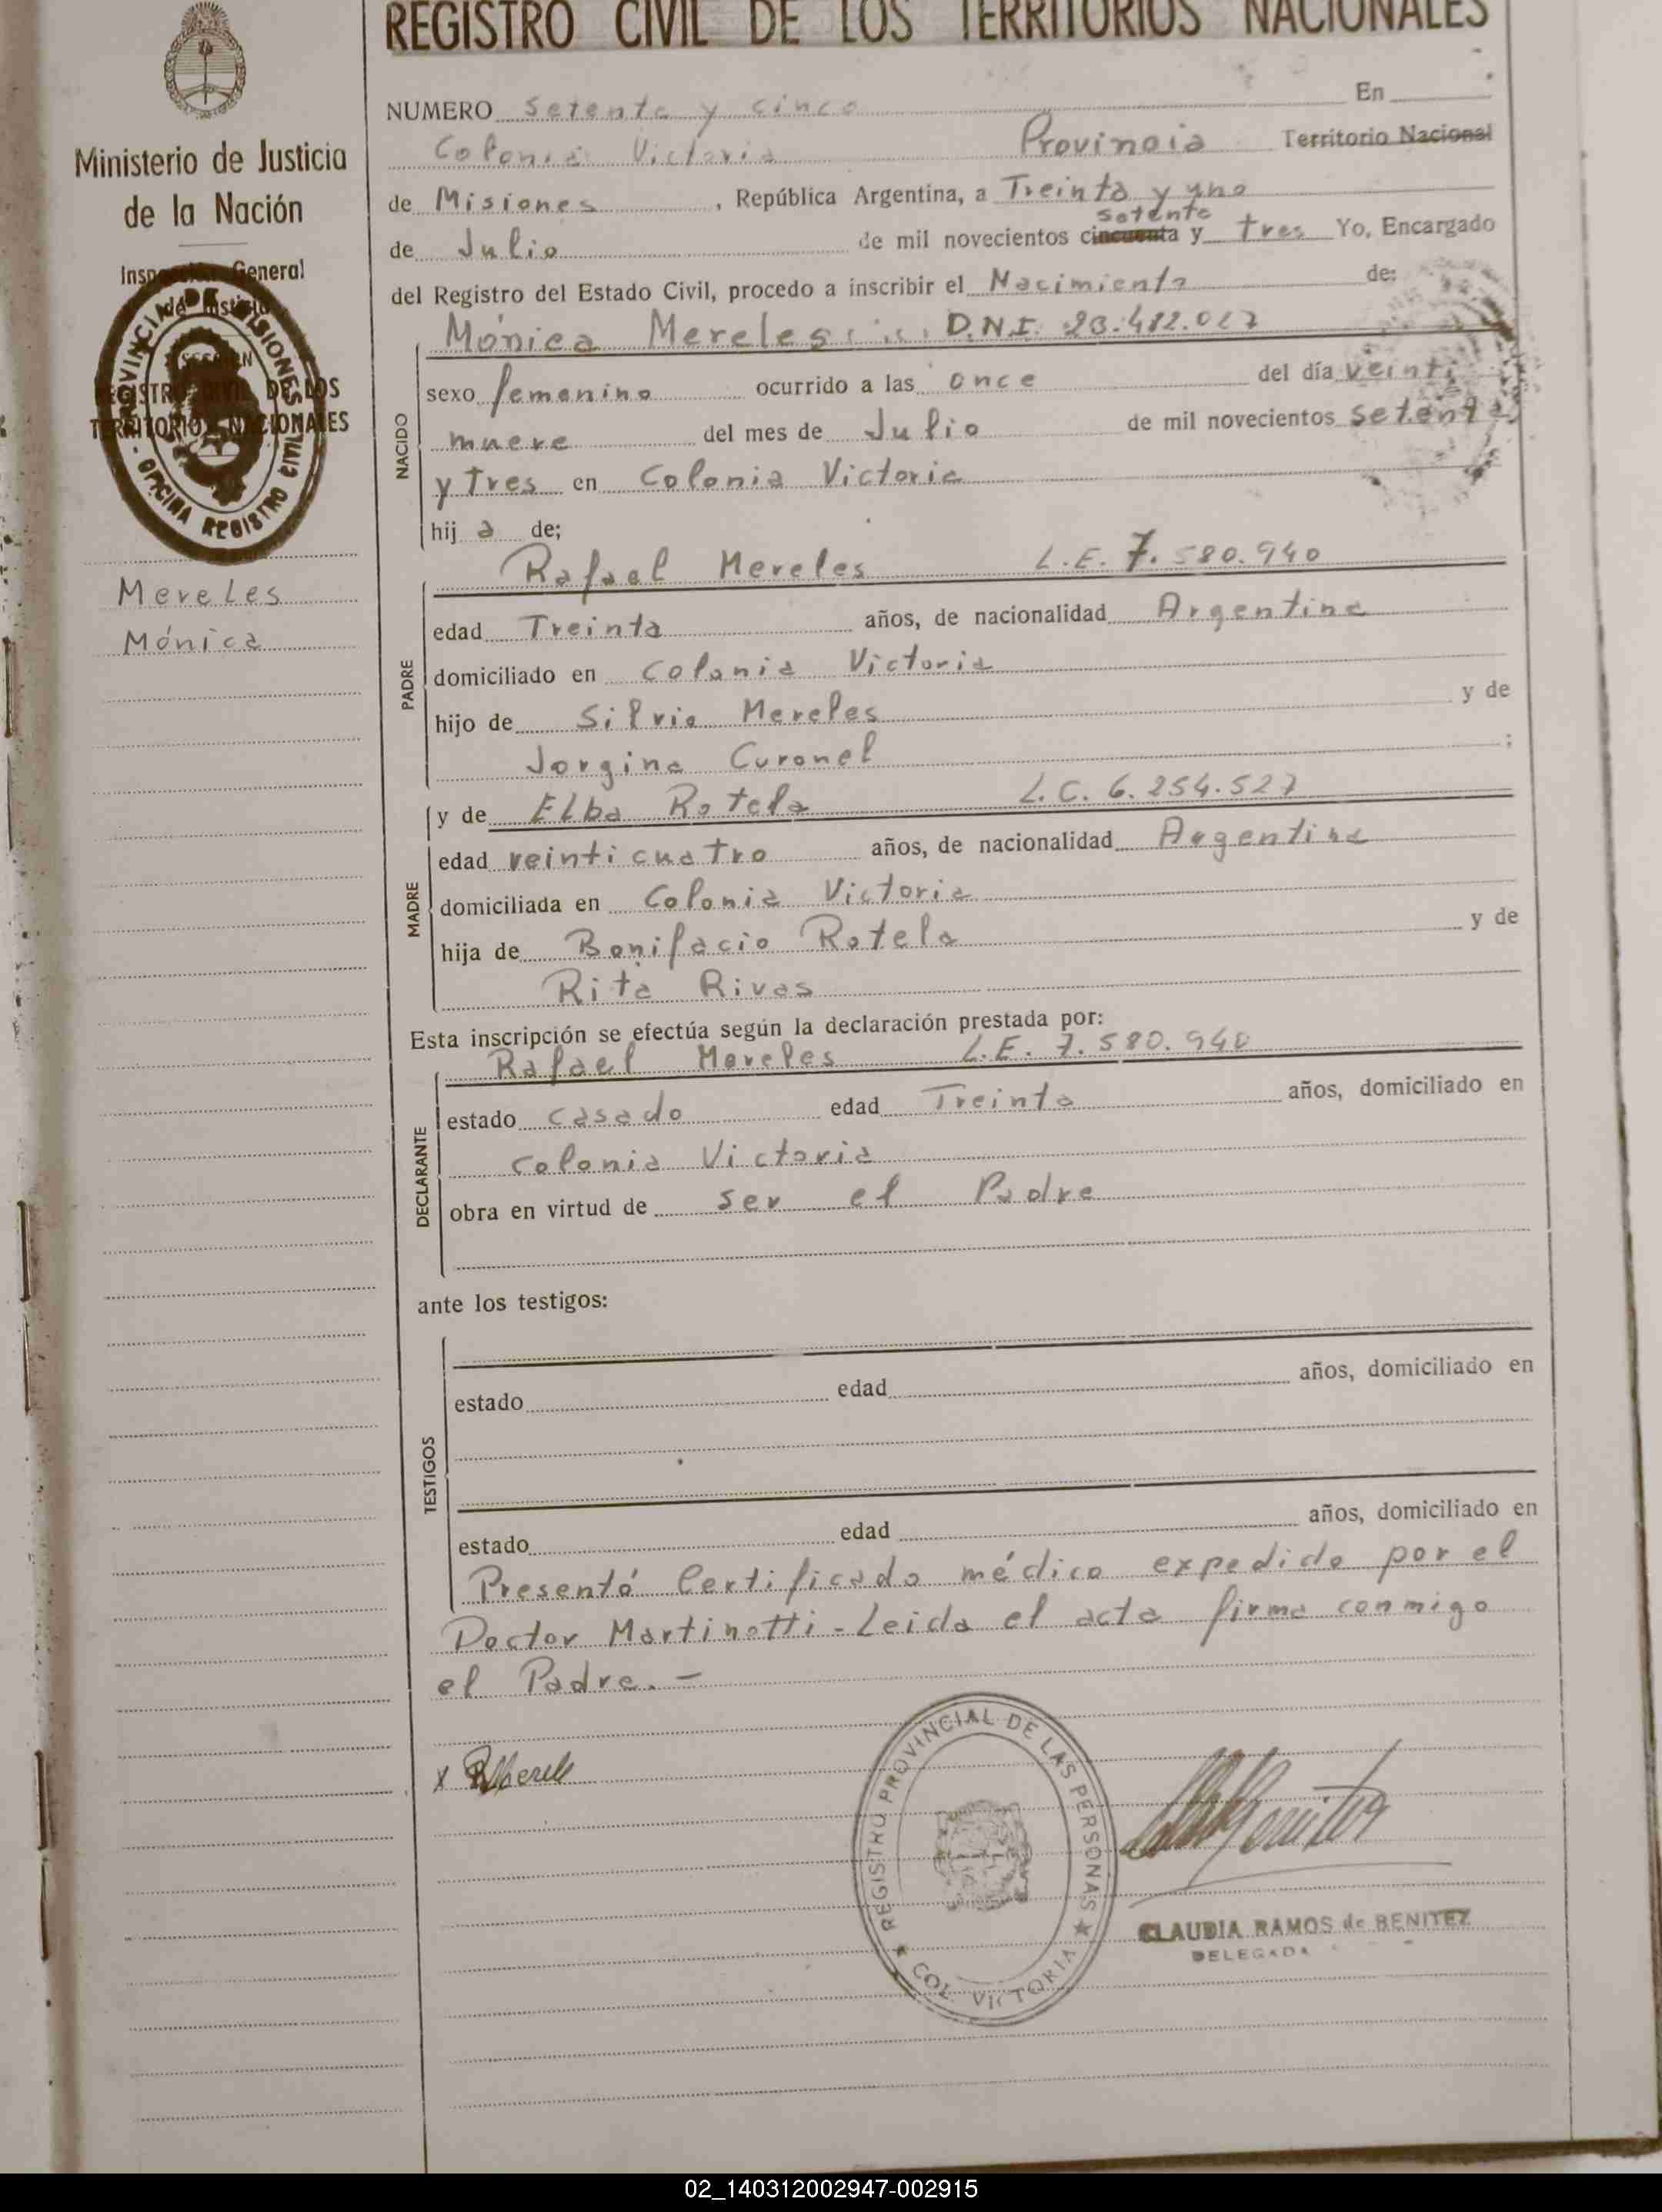 REGISTRO CIVIL DE LOS TERRITORIOS NACIONALES
Ministerio de Justicia
de la Nación
Inspección General
de Justicia
SECCION
REGISTRO CIVIL DE LOS
TERRITORIOS NACIONALES
PROVINCIA DE MISIONES - OFICINA REGISTRO CIVIL
Mereles
Mónica
NUMERO Setenta y cinco En
Colonia Victoria Provincia Territorio Nacional
de Misiones, República Argentina, a Treinta y uno
setenta
de Julio de mil novecientos cincuenta y tres Yo, Encargado
del Registro del Estado Civil, procedo a inscribir el Nacimiento de:
NACIDO
Mónica Mereles D.N.I.
sexo femenino ocurrido a las once del día veinti
nueve del mes de Julio de mil novecientos setenta
y Tres en Colonia Victoria
hij a de;
PADRE
Rafael Mereles L.E. 7.580.940
edad Treinta años, de nacionalidad Argentina
domiciliado en Colonia Victoria
hijo de Silvio Mereles y de
Jorgina Coronel ;
MADRE
y de Elba Rotela L.C. 6.254.527
edad veinticuatro años, de nacionalidad Argentina
domiciliada en Colonia Victoria
hija de Bonifacio Rotela y de
Rita Rivas
Esta inscripción se efectúa según la declaración prestada por:
DECLARANTE
Rafael Mereles L.E. 7.580.940
estado casado edad Treinta años, domiciliado en
Colonia Victoria
obra en virtud de ser el Padre
ante los testigos:
TESTIGOS
estado edad años, domiciliado en
estado edad años, domiciliado en
Presentó Certificado médico expedido por el
Doctor Martinotti - Leida el acta firma conmigo
el Padre. -
x RMerels
REGISTRO PROVINCIAL DE LAS PERSONAS ★ COL. VICTORIA ★
CLAUDIA RAMOS de BENITEZ
DELEGADA
02_140312002947-002915